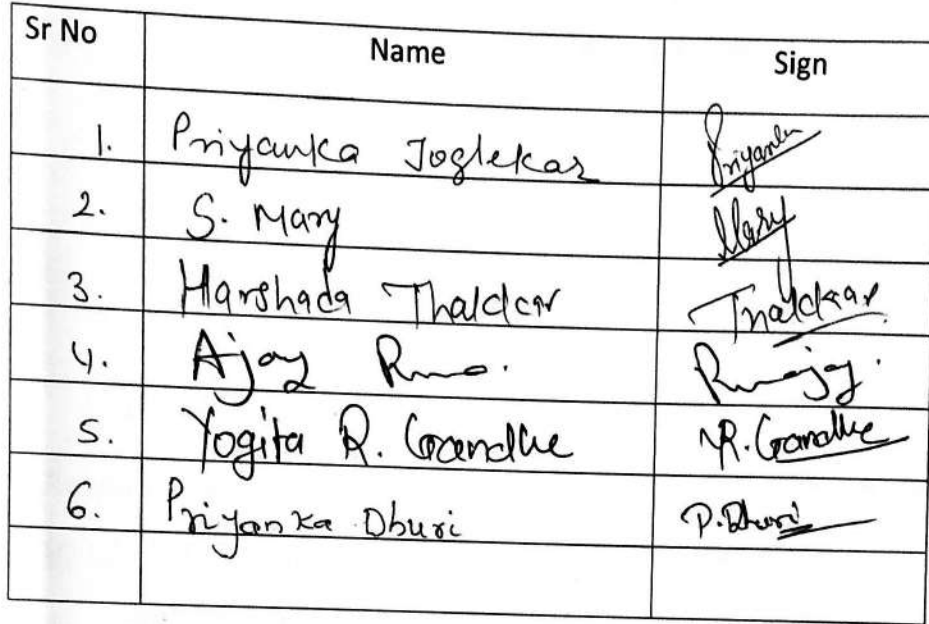 Sr No Name Sign
1. Priyanka Joglekar Priyanka
2. S. Mary Mary
3. Harshada Thaldkar Thaldkar
4. Ajay
5. Yogita R. Gandhe YR. Gandhe
6. Priyanka Dhuri P. Dhuri